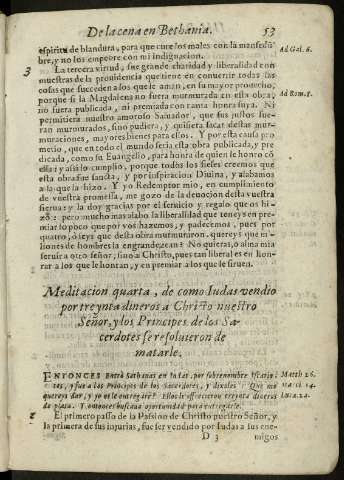 De la cena en Bethania. 53
espiritu de blandura, para que cure los males con la mansedũ- Ad Gal. 6.
bre, y no los empeore con mi indignacion.
3 La tercera virtud, fue grande charidad y liberalidad con
muestras de la prouidencia que tiene en conuertir todas las
cosas que succeden a los que le aman, en su mayor prouecho; Ad Rom. 8.
porque si la Magdalena no fuera murmurada en esta obra,
no fuera publicada, ni premiada con tanta honra suya. Ni
permitiera nuestro amoroso Saluador, que sus justos fue-
ran murmurados, sino pudiera, y quisiera sacar destas mur-
muraciones, mayores bienes para ellos. Y por esta causa pro
metio, que en todo el mundo seria esta obra publicada, y pre
dicada, como su Euangelio, para honra de quien le honro cõ
ella: y assi lo cumplio, porque todos los fieles creemos que
esta obra fue sancta, y por inspiracion Diuina, y alabamos
a la que la hizo. Y yo Redemptor mio, en cumplimiento
de vuestra promessa, me gozo de la deuocion desta vuestra
sierua: y la doy gracias por el seruicio y regalo que os hi-
zo: pero mucho mas alabo la liberalidad que teneys en pre-
miar lo poco que por vos hazemos, y padecemos, pues por
quatro, o seys que desta obra murmuraron, quereys que mi-
llones de hombres la engrandezcan? No quieras, o alma mia
seruir a otro señor, sino a Christo, pues tan liberal es en hon-
rar a los que le honran, y en premiar a los que le siruen.
Meditacion quarta, de como Iudas vendio
por treynta dineros a Christo nuestro
Señor, y los Principes de los Sa-
cerdotes se resoluieron de
matarle.
ENTONCES Entrò Sathanas en Iudas, por sobrenombre Iscario- Matth 26.
tes, y fue a los Principes de los Sacerdotes, y dixoles: Que me Marci. 14.
quereys dar, y yo os le entregare? Ellos le offrecieron treynta dineros Luca. 22.
de plata. Y entonces buscaua oportunidad para entregarle.
El primero passo de la Passion de Christo nuestro Señor, y
la primera de sus injurias, fue ser vendido por Iudas a sus ene-
D 3 migos